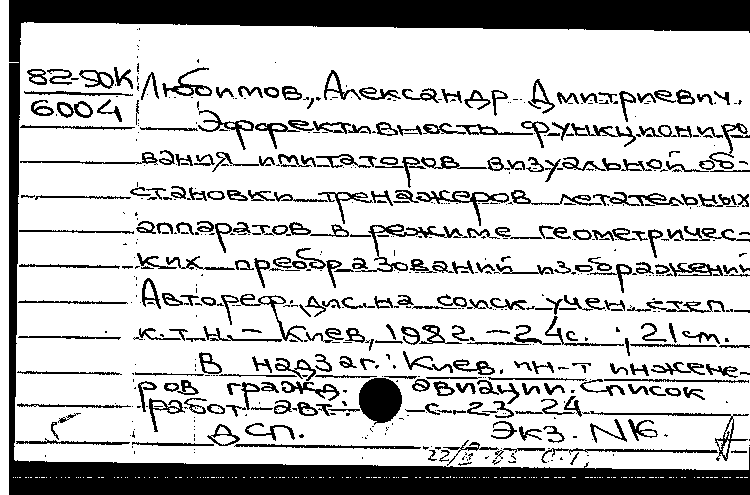 82-90К
6004
Любимов, Александр Дмитриевич.
Эффективность функциониро
вания имитаторов визуальной об-
становки тренажеров летательных
аппаратов в режиме геометричес-
ких преобразований изображений
Автореф. дис. на соиск. учен. степ.
к.т.н. - Киев, 1982. - 24с. ; 21см.
В надзаг.: Киев. ин-т инжене-
ров гражд. авиации. Список
работ авт.: с. 23-24
ДСП. Экз. N16.